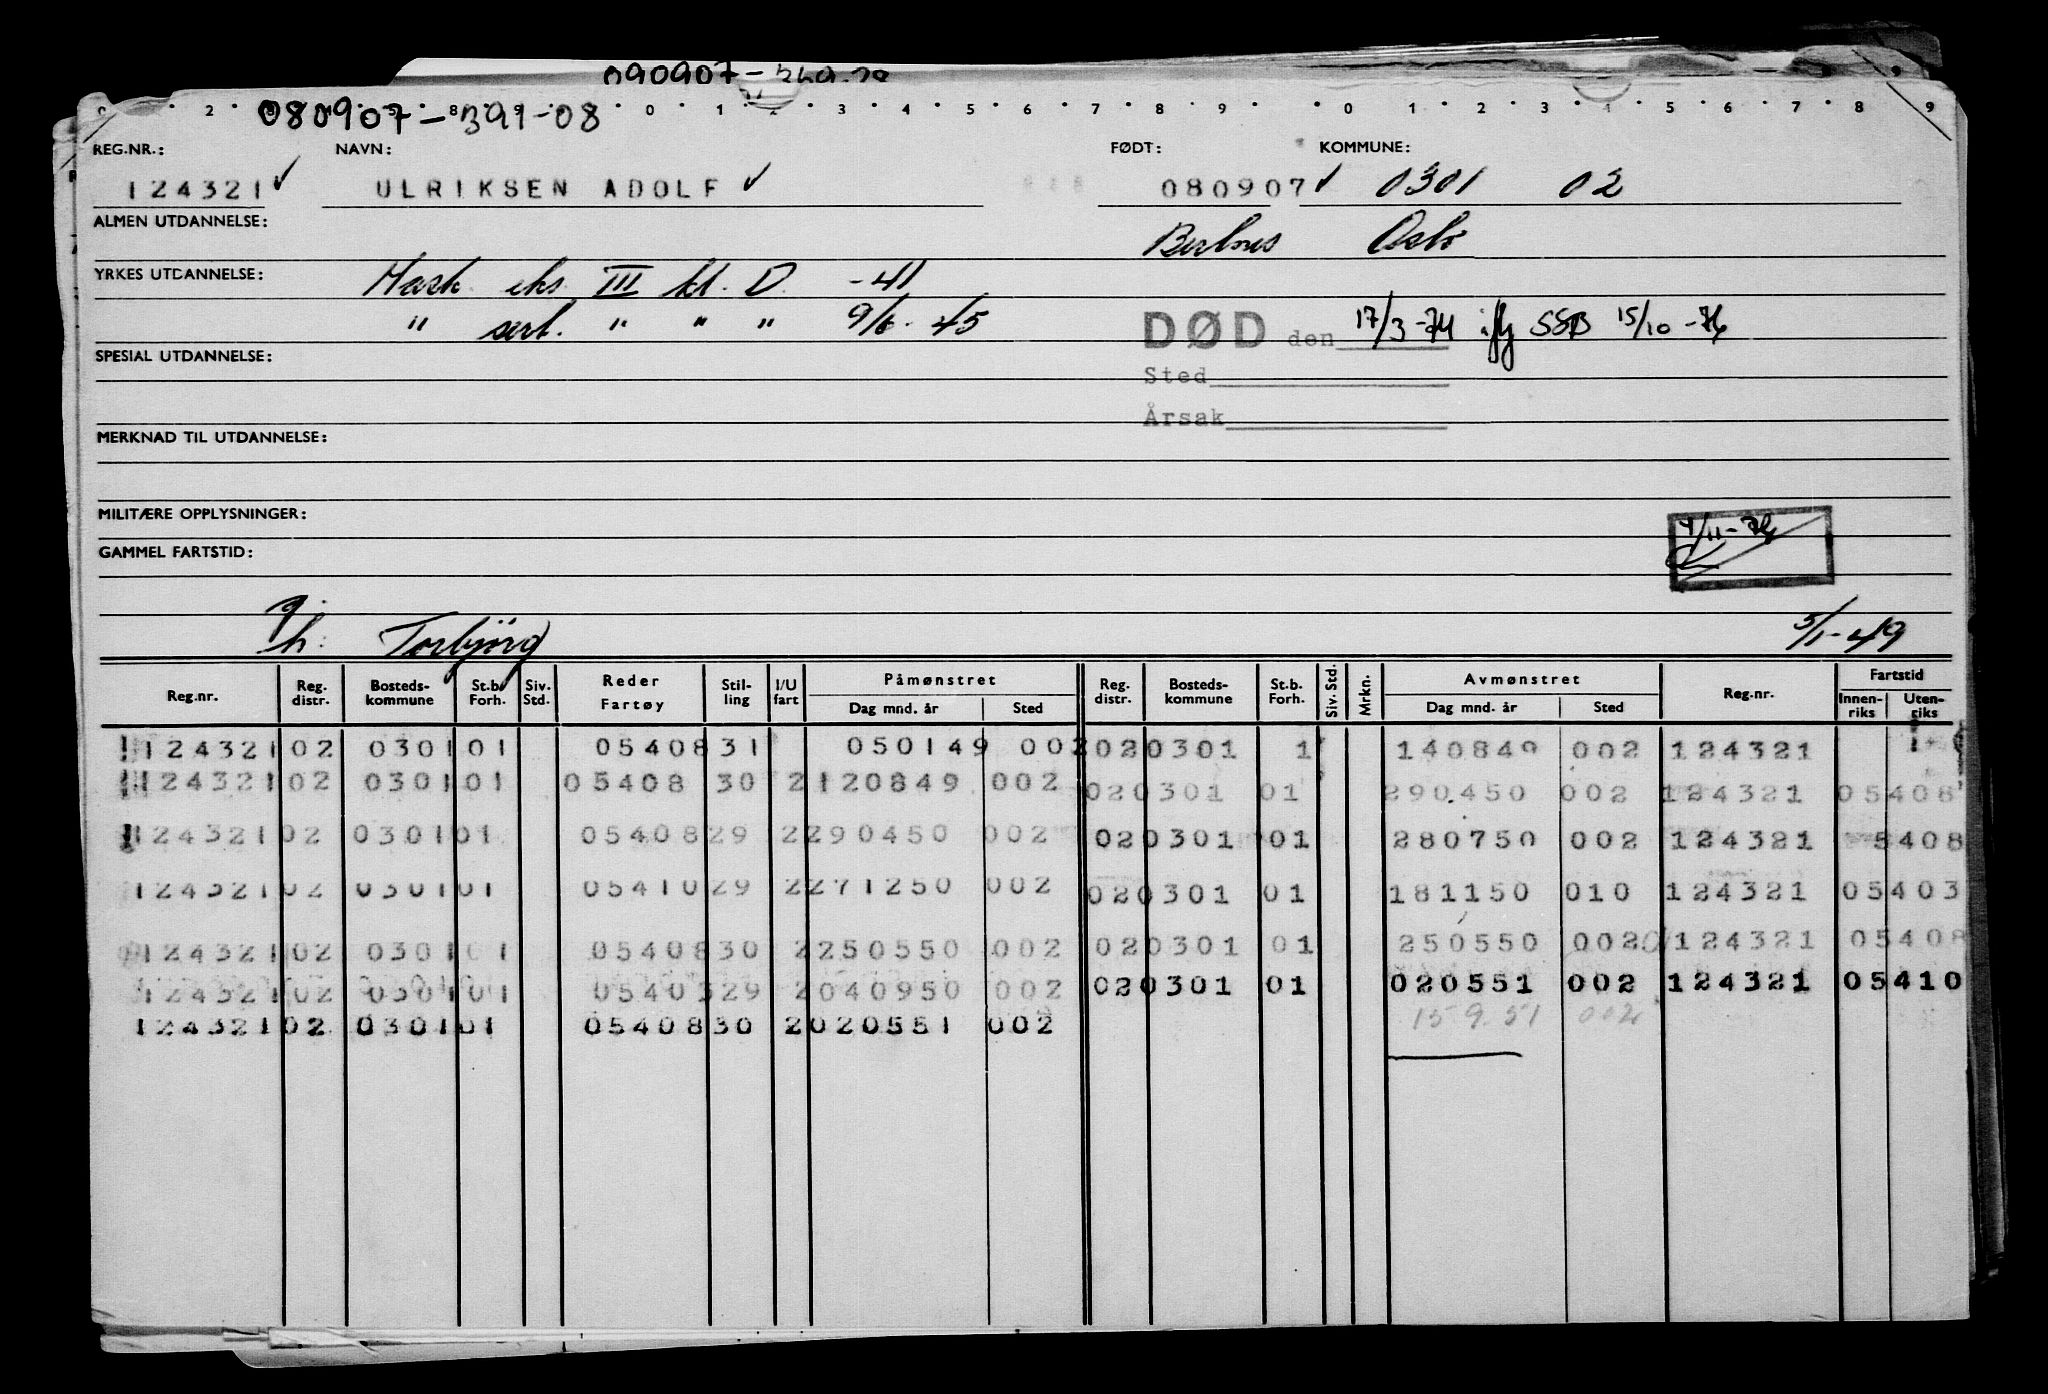 090907-
080907-391-08
REG.NR.: NAVN: FØDT: KOMMUNE:
124321 ✓ ULRIKSEN ADOLF ✓ 080907 ✓ 0301 02
ALMEN UTDANNELSE: Oslo
YRKES UTDANNELSE: Mask. eks. III kl. D. -41
" sert. " " " 9/6-45
DØD den 17/3-74 ifg SSB 15/10-76
SPESIAL UTDANNELSE:
Sted
Årsak
MERKNAD TIL UTDANNELSE:
MILITÆRE OPPLYSNINGER:
4/11-76
GAMMEL FARTSTID:
g.
h: Torbjörg 5/1-49
Reg.nr. Reg. distr. Bosteds-kommune St.b. Forh. Siv. Std. Reder Fartøy Stil-ling I/U fart Påmønstret Dag mnd. år Sted Reg. distr. Bosteds-kommune St.b. Forh. Siv. Std. Mrkn. Avmønstret Dag mnd. år Sted Reg.nr. Fartstid Innen-riks Uten-riks
124321 02 0301 01 05408 31 050149 002 02 0301 1 140849 002 124321
124321 02 0301 01 05408 30 2 120849 002 02 0301 01 290450 002 124321 05408
124321 02 0301 01 05408 29 2 290450 002 02 0301 01 280750 002 124321 5408
124321 02 0301 01 05410 29 2 271250 002 02 0301 01 181150 010 124321 05403
124321 02 0301 01 05408 30 2 250550 002 02 0301 01 250550 002 124321 05408
124321 02 0301 01 05403 29 2 040950 002 02 0301 01 020551 002 124321 05410
124321 02 0301 01 05408 30 2 020551 002 15 9. 51 002